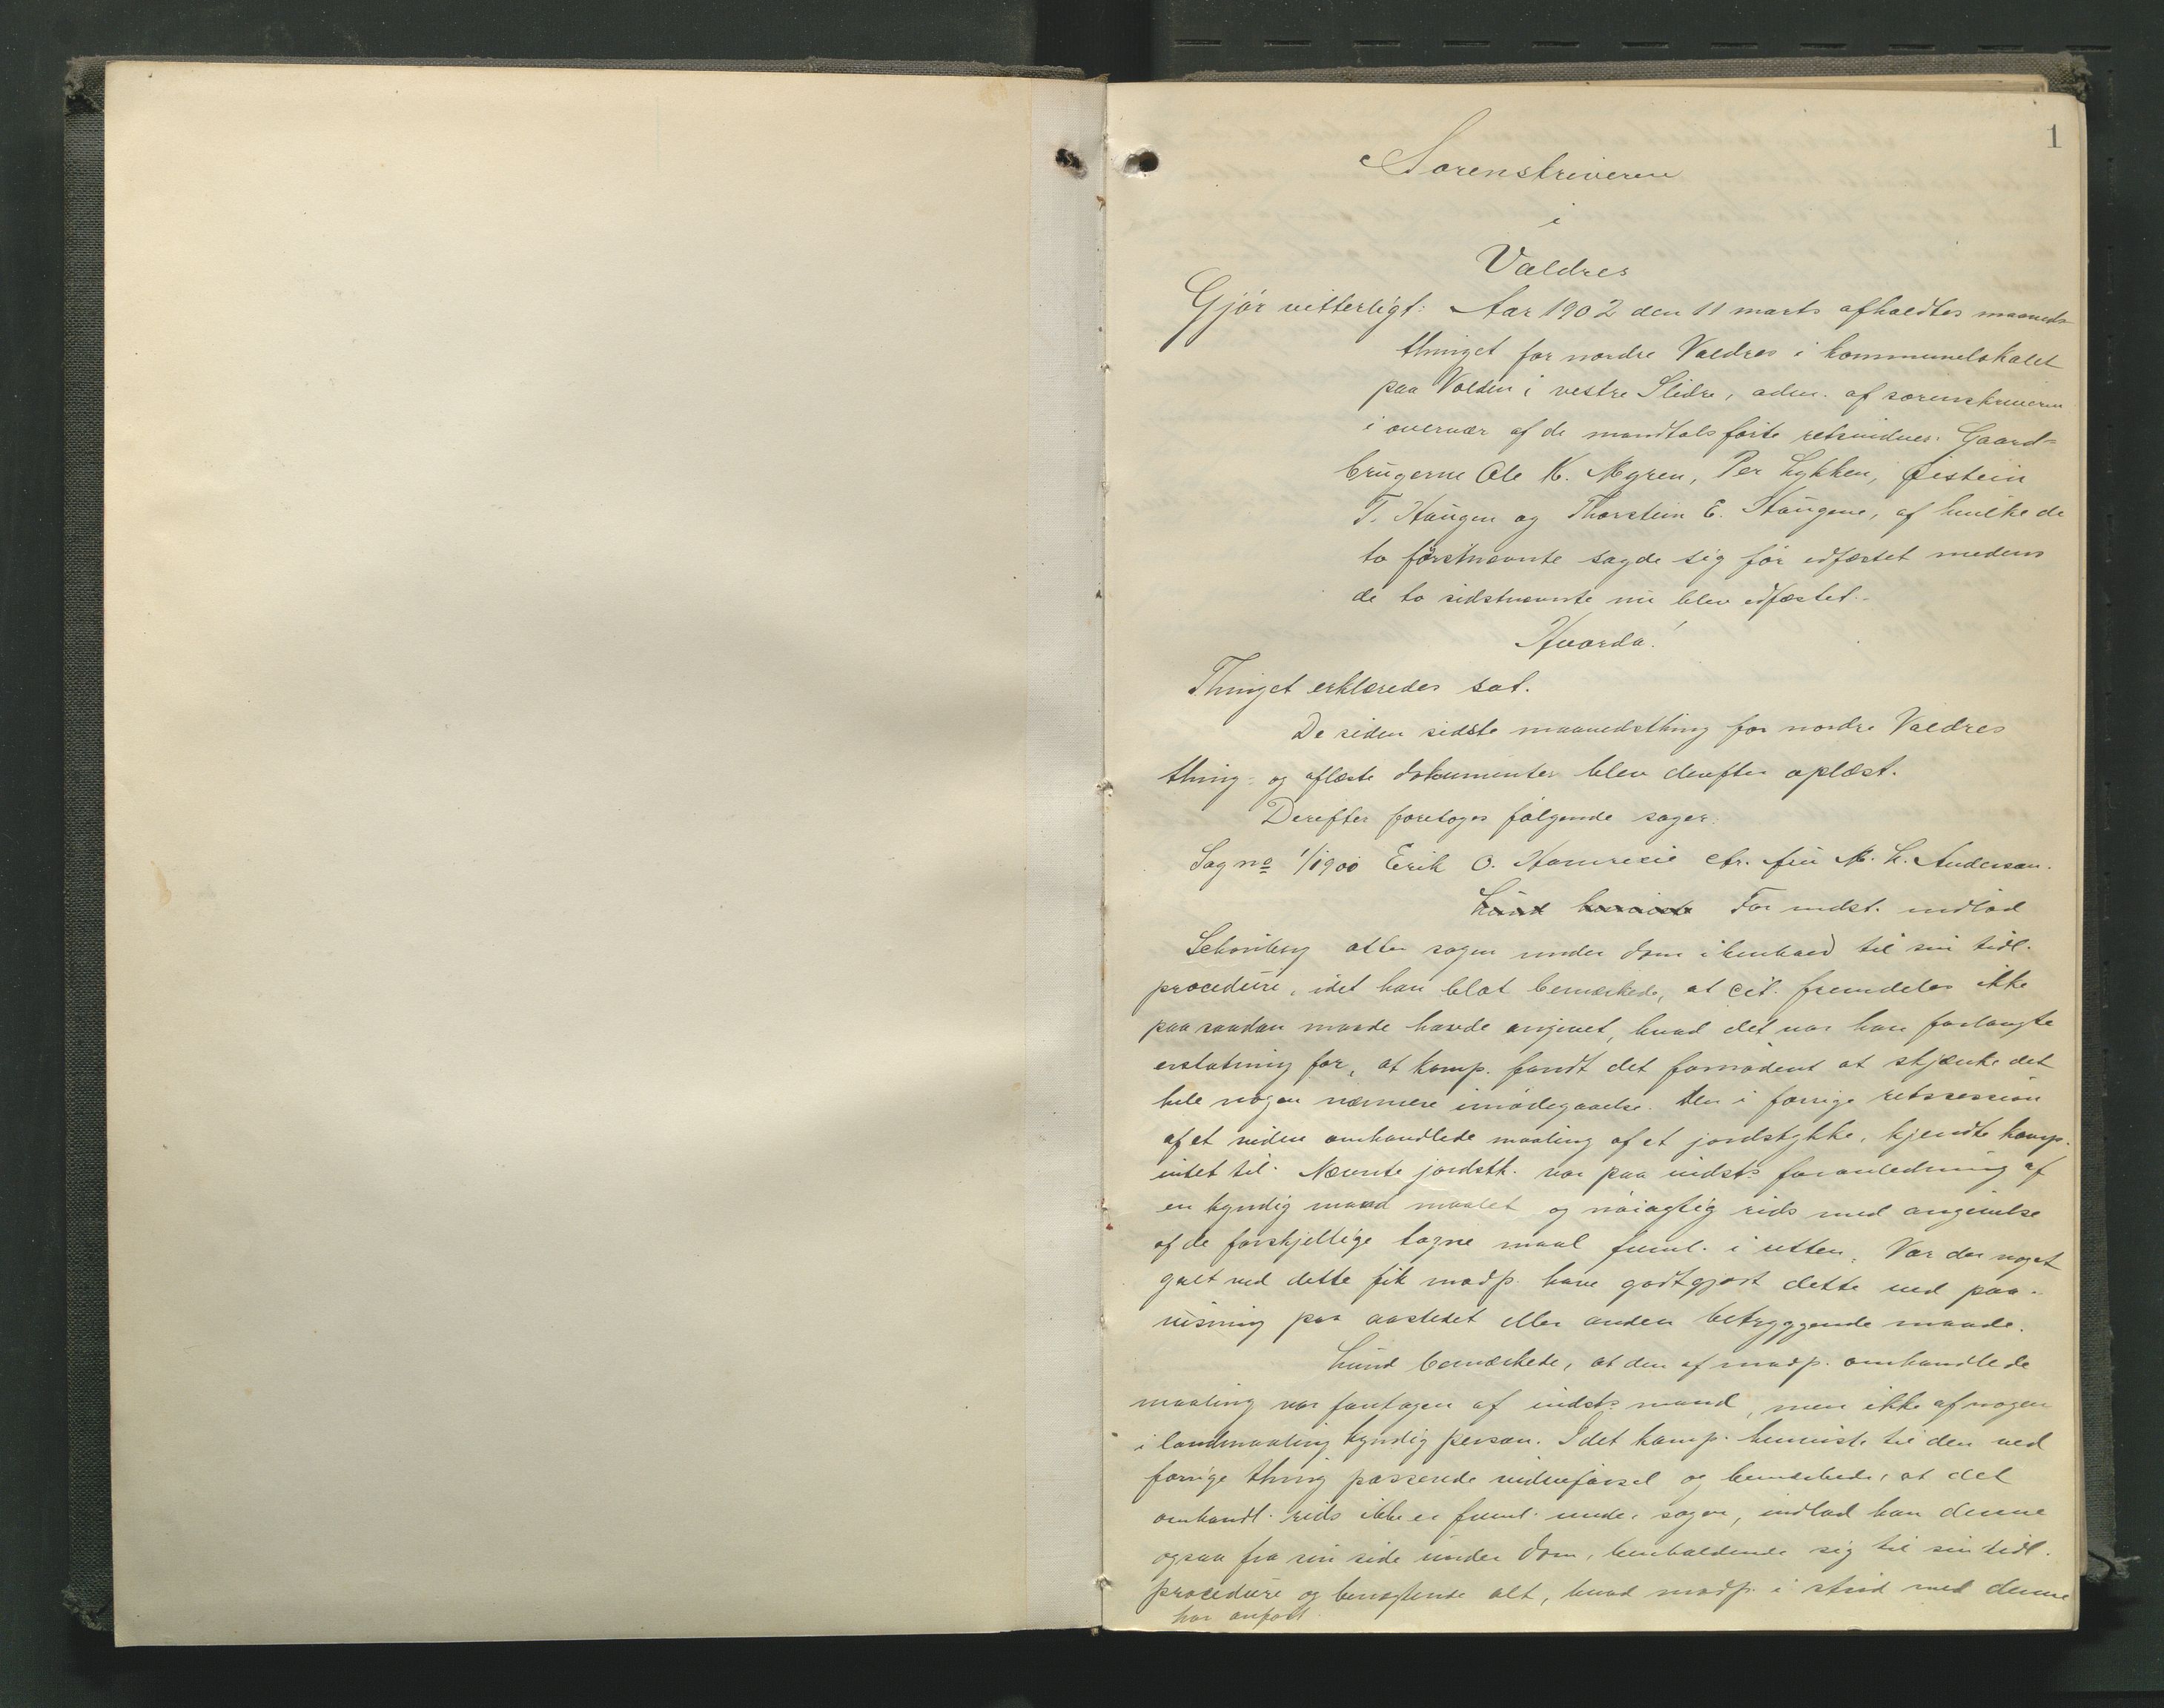 1
Sorenskriveren
i
Valdres
Gjør vitterligt: Aar 1902 den 11 marts afholdtes maaneds-
thinget for nordre Valdres i kommunelokalet
paa Volden i vestre Slidre, adm. af sorenskriveren
i overvær af de mandtalsførte retsvidner: Gaard-
brugerne Ole K. Myren, Per Lykken, Øistein
T. Haugen og Thorstein E. Haugene, af hvilke de
to førstnævnte sagde sig før edfæstet medens
de to sidstnævnte nu blev edfæstet.
Hvorda!
Thinget erklæredes sat.
De siden sidste maanedsthing for nordre Valdres
thing- og aflæste dokumenter blev derefter oplæst.
Derefter foretoges følgende sager:
Sag no 1/1900 Erik O. ctr. fru M. L. Anderson.
For indst. indlod
atter sagen under dom i henhold til sin tidl.
procedure, idet han blot bemærkede, at cit. fremdeles ikke
paa saadan maade havde angivet, hvad det var han forlangte
erstatning for, at komp. fandt det fornødent at skjænke det
hele nogen nærmere imødegaaelse. Den i forrige retssession
af et vidne omhandlede maaling af et jordstykke, kjendte komp.
intet til. Nævnte jordstk. var paa indsts foranledning af
en kyndig mand maalet og nøiagtig rids med angivelse
af de forskjellige tagne maal freml. i retten. Var der noget
galt ved dette fik modp. have godtgjort dette ved paa-
visning paa aastedet eller anden betryggende maade.
Lund bemærkede, at den af modp. omhandlede
maaling var foretagen af indsts mand, men ikke af nogen
i landmaaling kyndig person. Idet komp. henviste til den ved
forrige thing passerede vidneførsel og bemærkede, at det
omhandl. rids ikke er freml. under sagen, indlod han denne
ogsaa fra sin side under dom, henholdende sig til sin tidl.
procedure og benægtende alt, hvad modp. i strid med denne
har anført.